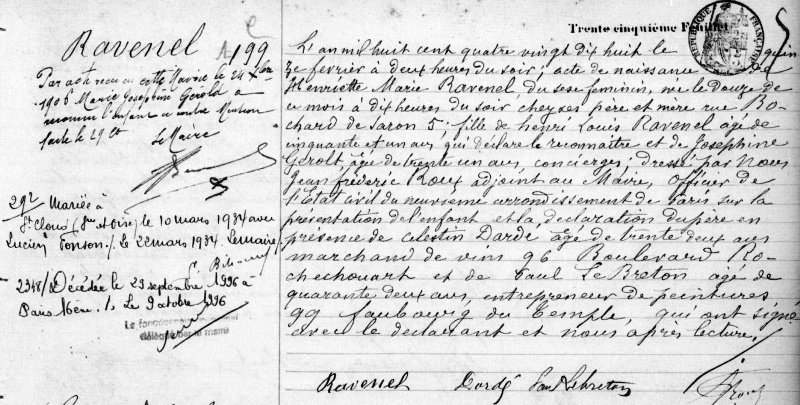 Ravenel
199
Par acte reçu en cette Mairie le 24 Xbre
1906 Marie Josephine Gérolt a
reconnu l'enfant ci contre Mention
faite le 29 ct
Le Maire
292 Mariée à
St Cloud (Sne et Oise) le 10 mars 1934 avec
Lucien Fonson ./. Le 22 mars 1934. Le maire
2348/ Décédée le 23 septembre 1996 à
Paris 16eme ./. Le 9 octobre 1996
Le fonctionnaire
délégué par le maire
Trente cinquième Feuillet
RÉPUBLIQUE FRANÇAISE
L'an mil huit cent quatre vingt dix huit le quin
ze fevrier à deux heures du soir; acte de naissance de
Henriette Marie Ravenel du sexe feminin, née le douze de
ce mois à dix heures du soir chez ses père et mère rue Bo
chard de Saron 5; fille de henri Louis Ravenel âgé de
cinquante et un ans, qui déclare le reconnaître et de Joséphine
Gérolt âgée de trente un ans concierges; dressé par Nous
Jean frédéric Roux adjoint au Maire, officier de
l'Etat civil du neuvième arrondissement de Paris sur la
présentation de l'enfant et la déclaration du père en
présence de Celestin Dardé âgé de trente deux ans
marchand de vins 96 Boulevard Ro-
chechouart et de Paul Le Breton âgé de
quarante deux ans, entrepreneur de peintures
99 faubourg du temple, qui ont signé
avec le déclarant et nous après lecture,
Ravenel Dardé Paul Lebreton Roux